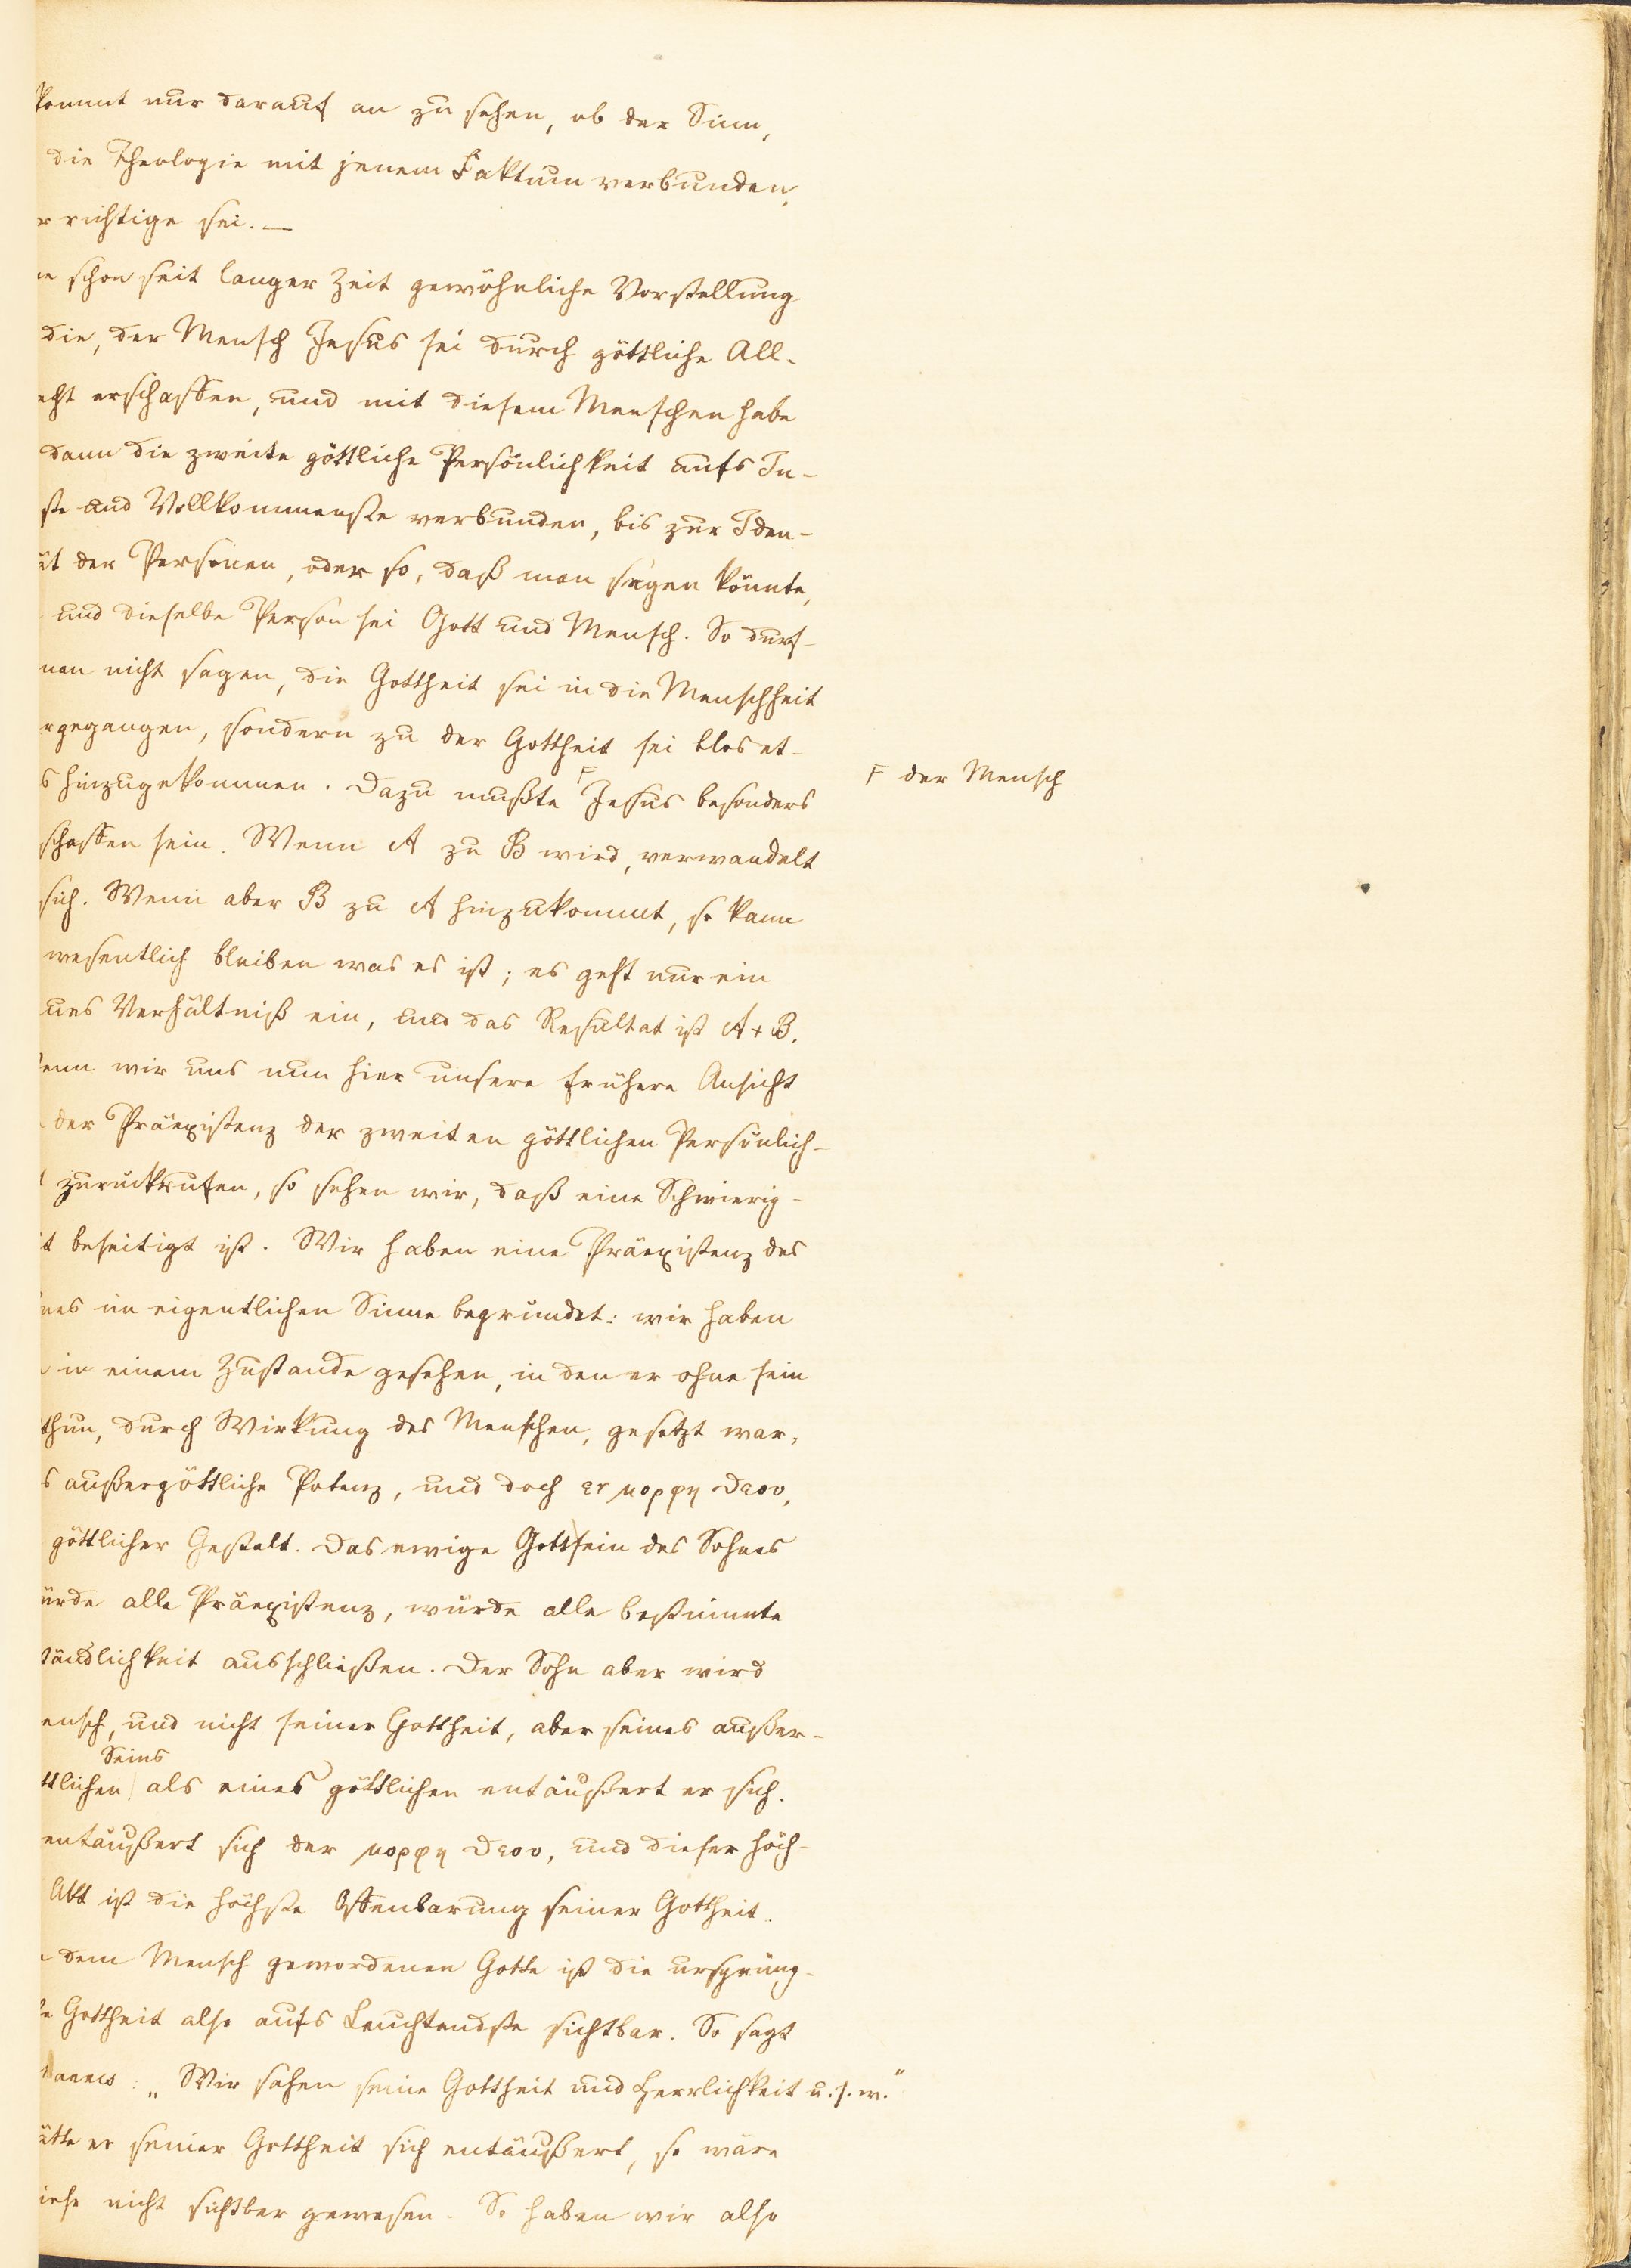 kommt nur darauf an zu sehen, ob der Sinn,
die Theologie mit jenem Faktum verbunden,
r richtige sei. —
ne schon seit langer Zeit gewöhnliche Vorstellung
die, der Mensch Jesus sei durch göttliche All-
cht erschaffen, und mit diesem Menschen habe
dann die zweite göttliche Persönlichkeit aufs In-
ste und Vollkommenste verbunden, bis zur Iden-
ät der Personen, oder so, daß man sagen könnte,
und dieselbe Person sei Gott und Mensch. So durf-
man nicht sagen, die Gottheit sei in die Menschheit
rgegangen, sondern zu der Gottheit sei blos et-
s hinzugekommen. Dazu mußte F Jesus besonders
F der Mensch
schaffen sein. Wenn A zu B wird, verwandelt
sich. Wenn aber B zu A hinzukommt, so kann
wesentlich bleiben was es ist; es geht nur ein
ues Verhältniß ein, und das Resultat ist A+B.
enn wir uns nun hier unsere frühere Ansicht
der Präexistenz der zweiten göttlichen Persönlich-
t zurückrufen, so sehen wir, daß eine Schwierig-
it beseitigt ist. Wir haben eine Präexistenz des
nes im eigentlichen Sinne begründet: wir haben
in einem Zustande gesehen, in den er ohne sein
thun, durch Wirkung des Menschen, gesetzt war,
s außergöttliche Potenz, und doch εν μορφη θεου,
göttlicher Gestalt. Das ewige Gottsein des Sohnes
ürde alle Präexistenz, würde alle bestimmte
tändlichkeit ausschließen. Der Sohn aber wird
ensch, und nicht seiner Gottheit, aber seines außer-
Seins
ttlichen als eines göttlichen entäußert er sich.
entäußert sich der μορφη θεου, und dieser höch-
Akt ist die höchste Offenbarung seiner Gottheit.
dem Mensch gewordenen Gotte ist die ursprüng-
e Gottheit also aufs Leuchtendste sichtbar. So sagt
hannes: „Wir sahen seine Gottheit und Herrlichkeit u. s. w."
ätte er seiner Gottheit sich entäußert, so wäre
iese nicht sichtbar gewesen. So haben wir also